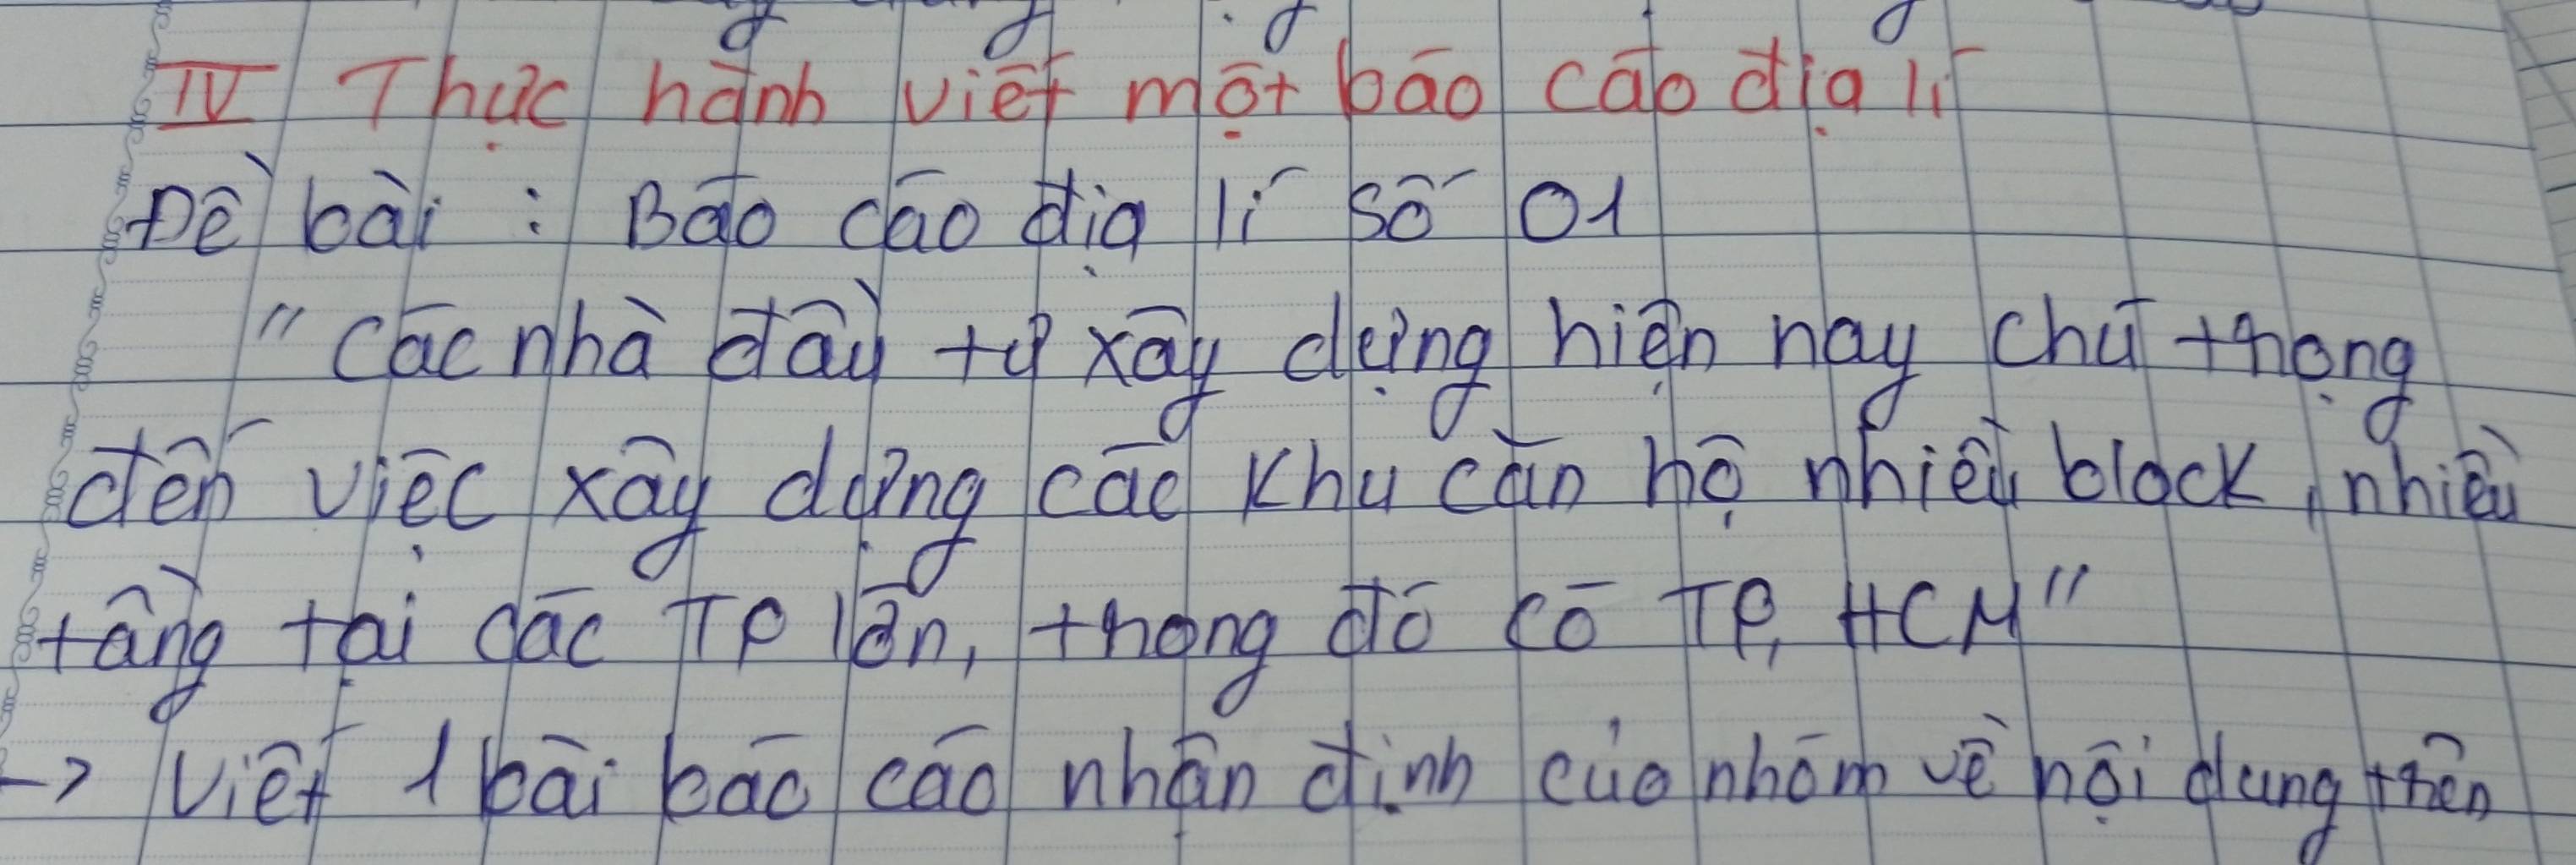 IV Thực hành viết một báo cáo địa lí
Đề bài : Báo cáo địa lí số 01
"Các nhà đầu tư xây dựng hiện nay chú trọng
đến việc xây dựng các khu căn hộ nhiều block, nhiều
tầng tại các TP lớn, trong đó có TP, HCM"
-> Viết 1 bài báo cáo nhận định của nhóm về nội dung trên